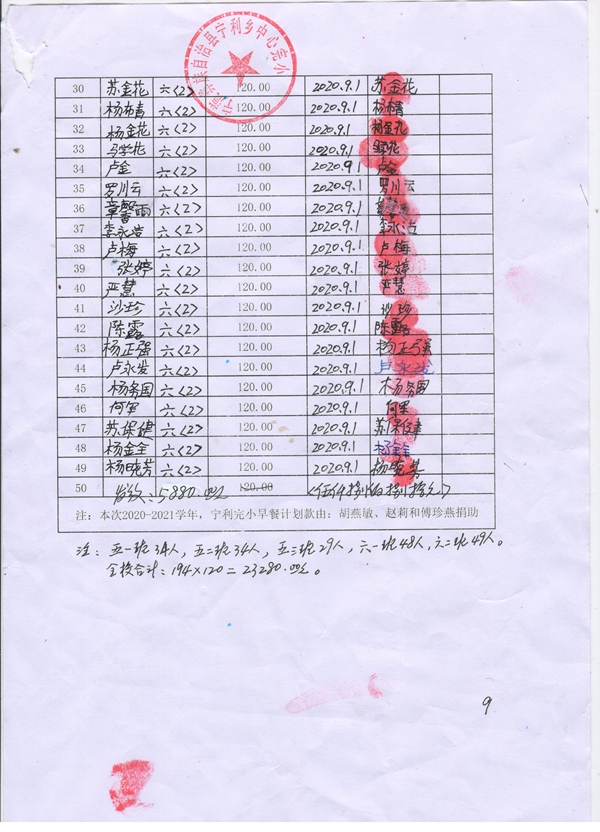 族自治县宁利乡中心完小
30 苏金花 六(2) 120.00 2020.9.1 苏金花
31 杨布青 六(2) 120.00 2020.9.1 杨布青
32 杨金花 六(2) 120.00 2020.9.1 杨金花
33 马学花 六(2) 120.00 2020.9.1
34 卢金 六(2) 120.00 2020.9.1 卢金
35 罗川云 六(2) 120.00 2020.9.1 罗川云
36 章馨雨 六(2) 120.00 2020.9.1
37 李永发 六(2) 120.00 2020.9.1
38 卢梅 六(2) 120.00 2020.9.1 卢梅
39 张婷 六(2) 120.00 2020.9.1 张婷
40 严慧 六(2) 120.00 2020.9.1 严慧
41 沙珍 六(2) 120.00 2020.9.1 沙珍
42 陈露 六(2) 120.00 2020.9.1 陈露
43 杨正强 六(2) 120.00 2020.9.1 杨正强
44 卢永发 六(2) 120.00 2020.9.1 卢永发
45 杨务国 六(2) 120.00 2020.9.1 杨务国
46 何军 六(2) 120.00 2020.9.1 何军
47 苏保健 六(2) 120.00 2020.9.1 苏保健
48 杨金全 六(2) 120.00 2020.9.1
49 杨晓芳 六(2) 120.00 2020.9.1
50 发放:5880.00元 120.00 〈伍仟捌佰捌拾元〉
注:本次2020-2021学年,宁利完小早餐计划款由:胡燕敏、赵莉和傅珍燕捐助
注:五一班34人,五二班34人,五三班29人,六一班48人,六二班49人。
全校合计:194×120=23280.00元。
9